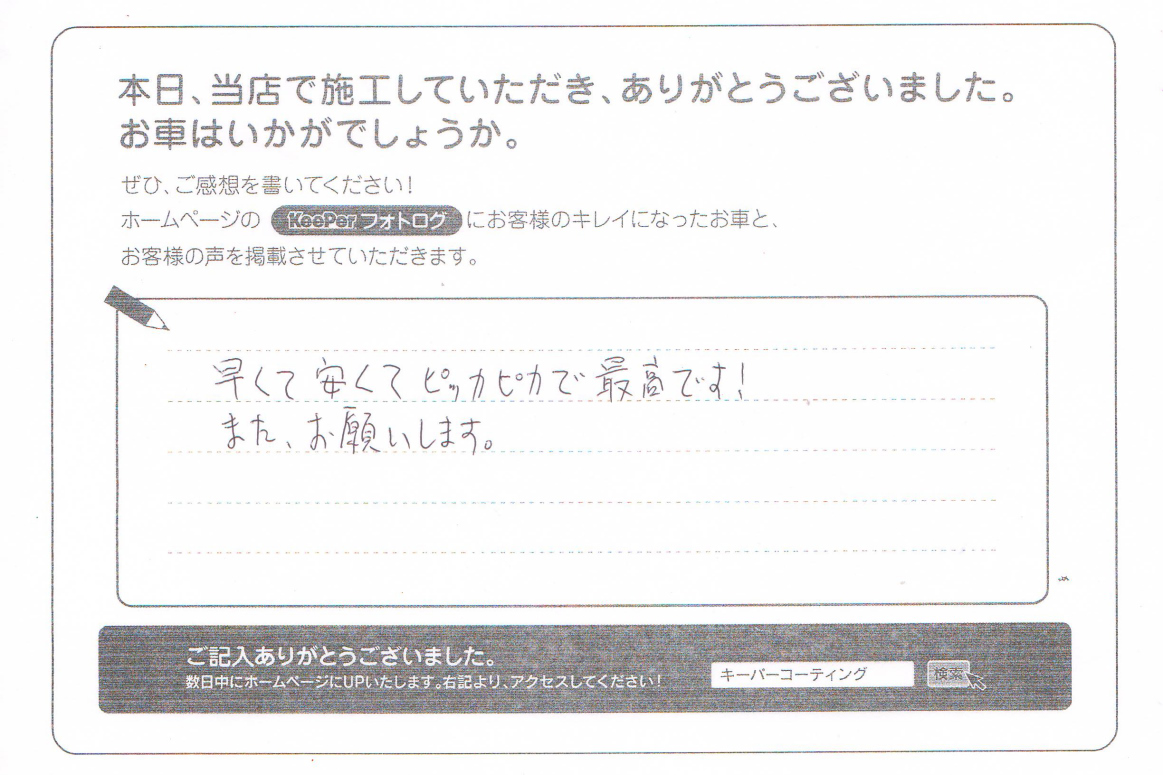 本日、当店で施工していただき、ありがとうございました。
お車はいかがでしょうか。
ぜひ、ご感想を書いてください！
ホームページの KeePer フォトログ にお客様のキレイになったお車と、
お客様の声を掲載させていただきます。
早くて安くてピッカピカで最高です！
また、お願いします。
ご記入ありがとうございました。
数日中にホームページにUPいたします。右記より、アクセスしてください！
キーパーコーティング 検索